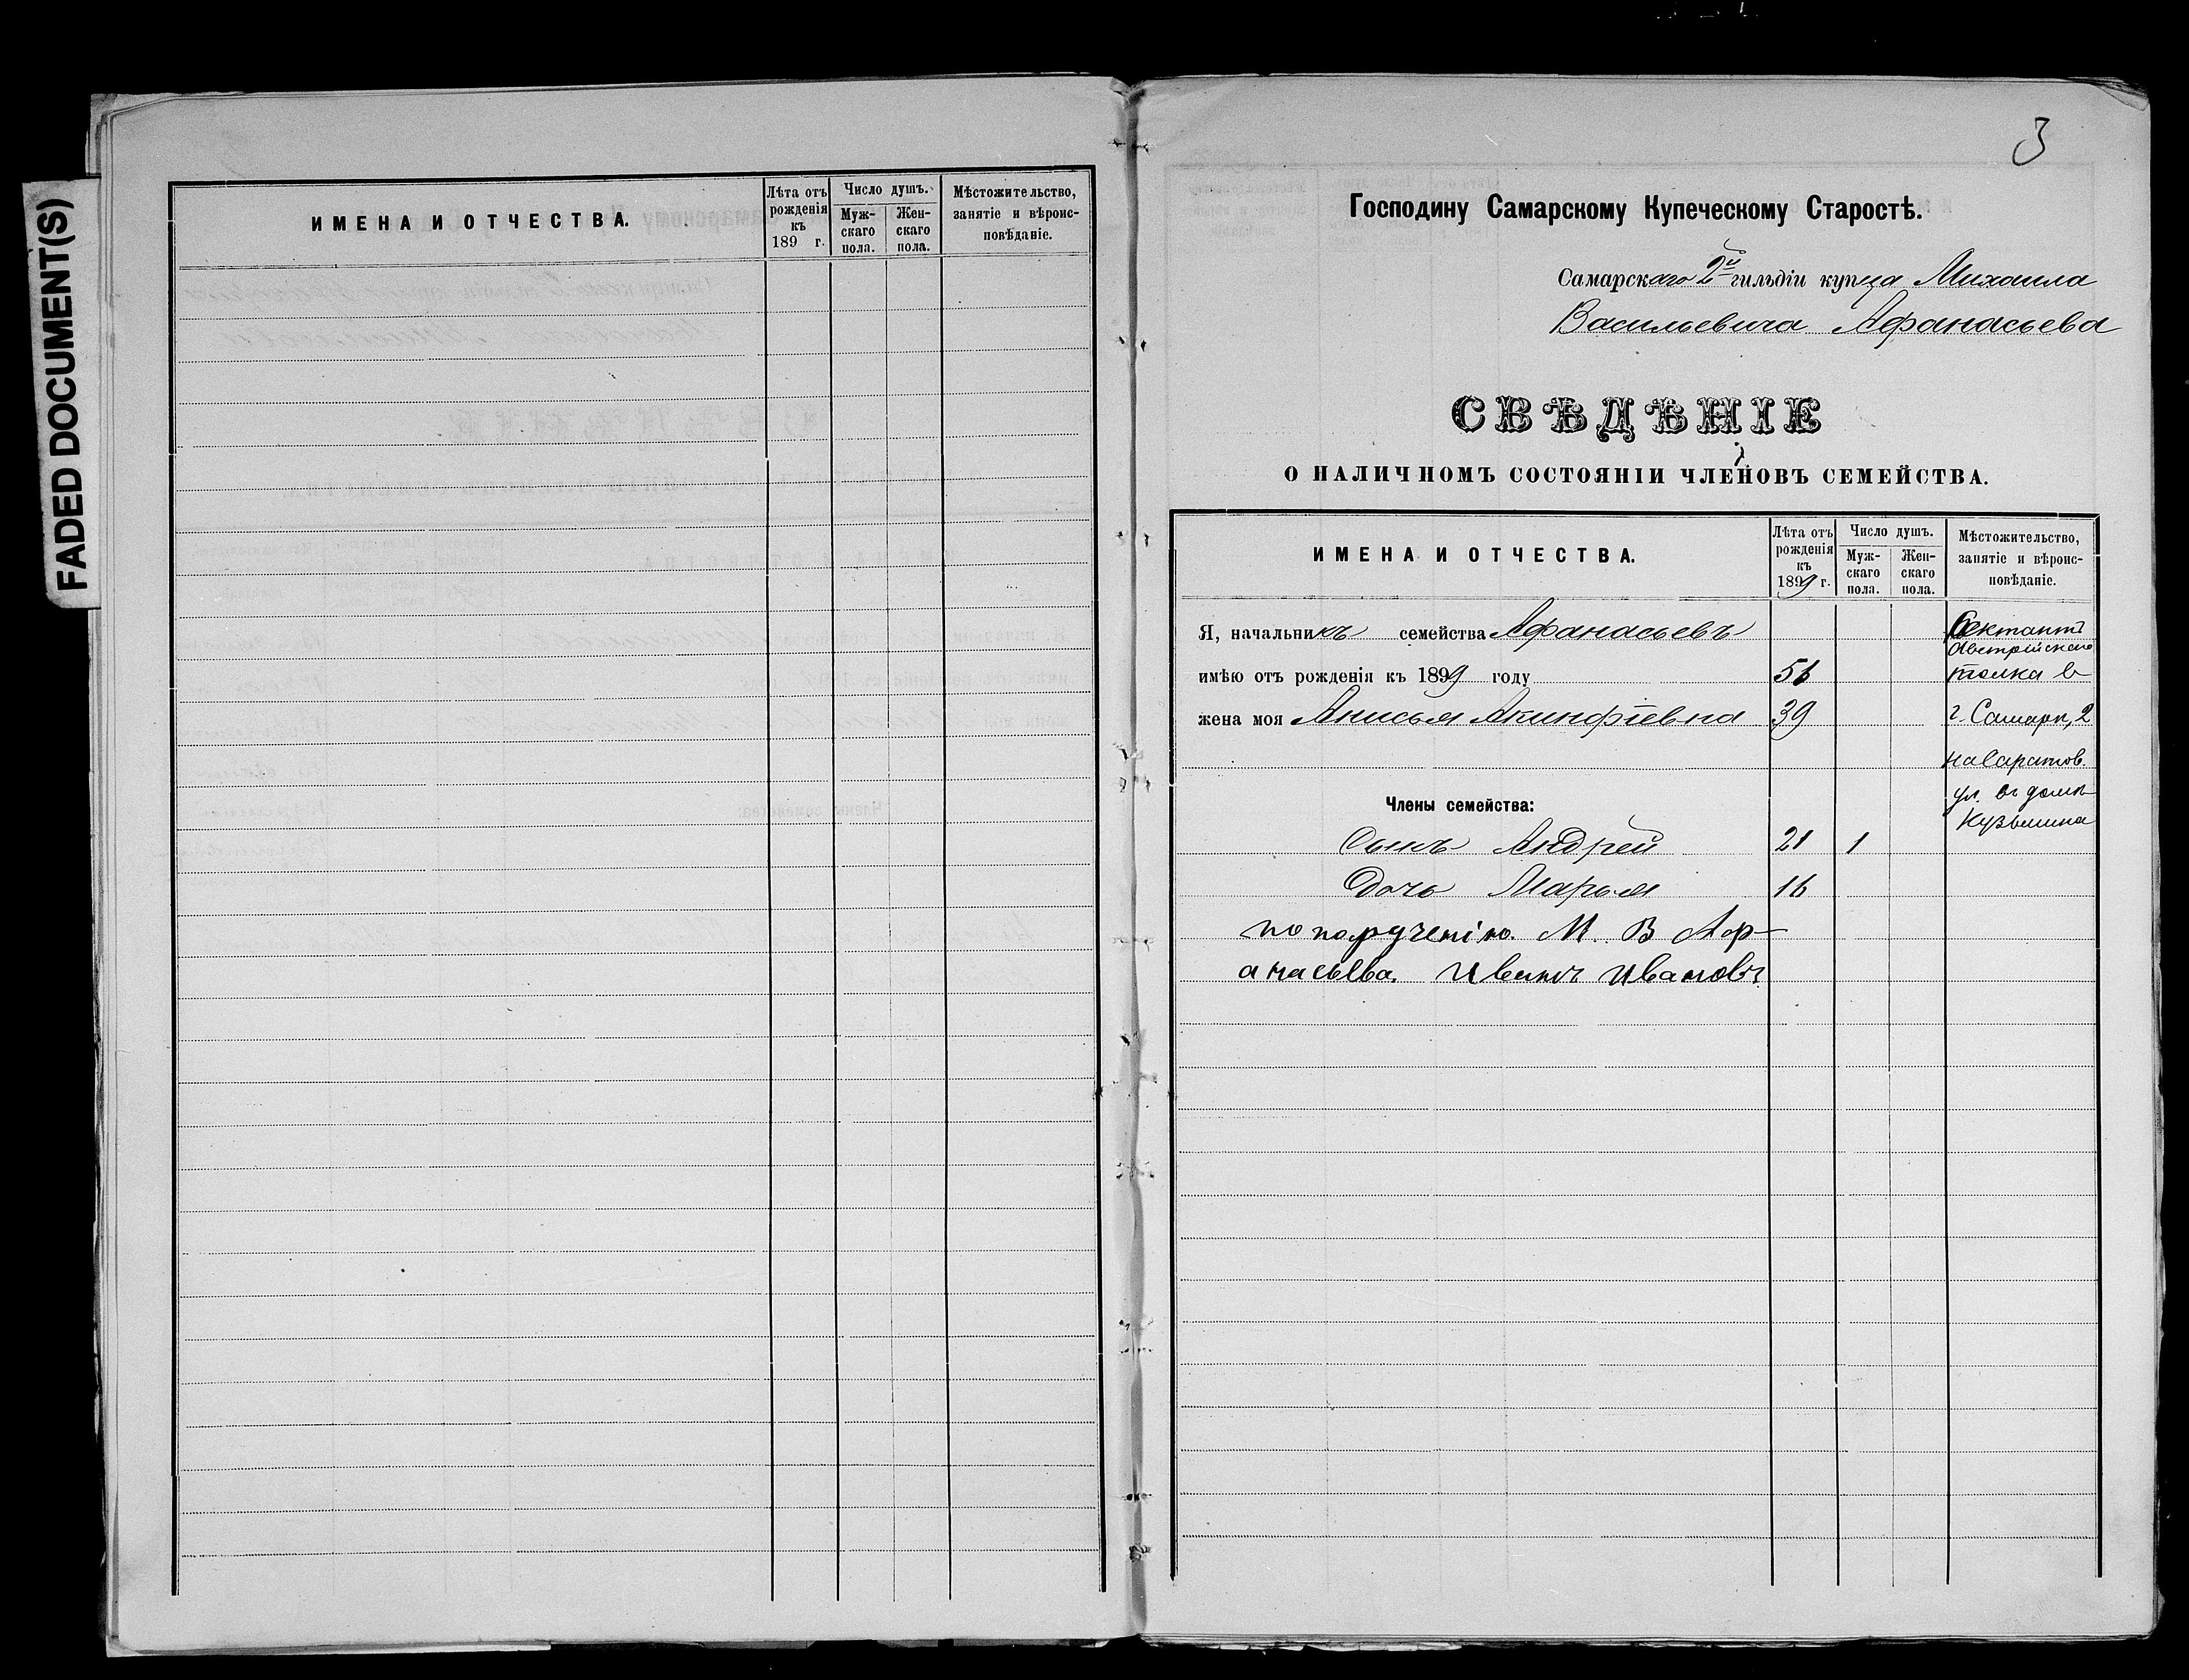 FADED DOCUMENT(S)
ИМЕНА И ОТЧЕСТВА.
Лѣта отъ рожденія къ 189 г.
Число душъ.
Мужскаго пола.
Женскаго пола.
Мѣстожительство, занятіе и вѣроисповѣданіе.
3
Господину Самарскому Купеческому Старостѣ.
Самарскаго 2й гильдіи купца Михаила
Васильевича Афанасьева
СВѢДѢНІЕ
О НАЛИЧНОМЪ СОСТОЯНІИ ЧЛЕНОВЪ СЕМЕЙСТВА.
ИМЕНА И ОТЧЕСТВА.
Лѣта отъ рожденія къ 1899 г.
Число душъ.
Мужскаго пола.
Женскаго пола.
Мѣстожительство, занятіе и вѣроисповѣданіе.
Я, начальникъ семейства Афанасьевъ
Сектантъ
Австрійскаго
имѣю отъ рожденія къ 1899 году 51 толка в
жена моя Анисья Акинфіевна 39 г. Самары, 2
на Саратов.
ул. въ домѣ
Кузьмина
Члены семейства:
Сынъ Андрей 21 1
Дочь Марья 16
по порученію. М. В Аф-
анасьева. Иванъ Ивановъ